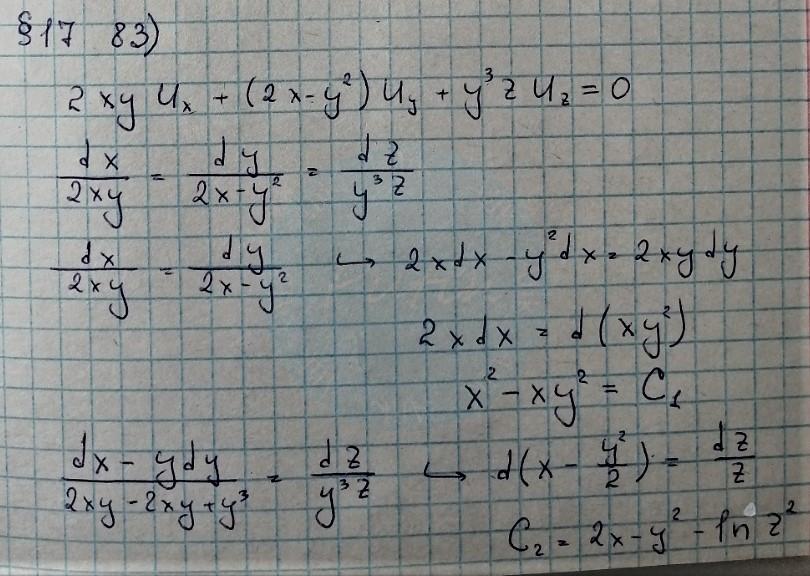 §17 83)
2xy Uₓ + (2x-y²) U_y + y³z U_z = 0
dx/2xy = dy/(2x-y²) = dz/y³z
dx/2xy = dy/(2x-y²) ↪ 2xdx - y²dx = 2xy dy
2xdx = d(xy²)
x² - xy² = C₁
(dx - ydy)/(2xy - 2xy + y³) = dz/y³z ↪ d(x - y²/2) = dz/z
C₂ = 2x - y² - ln z²